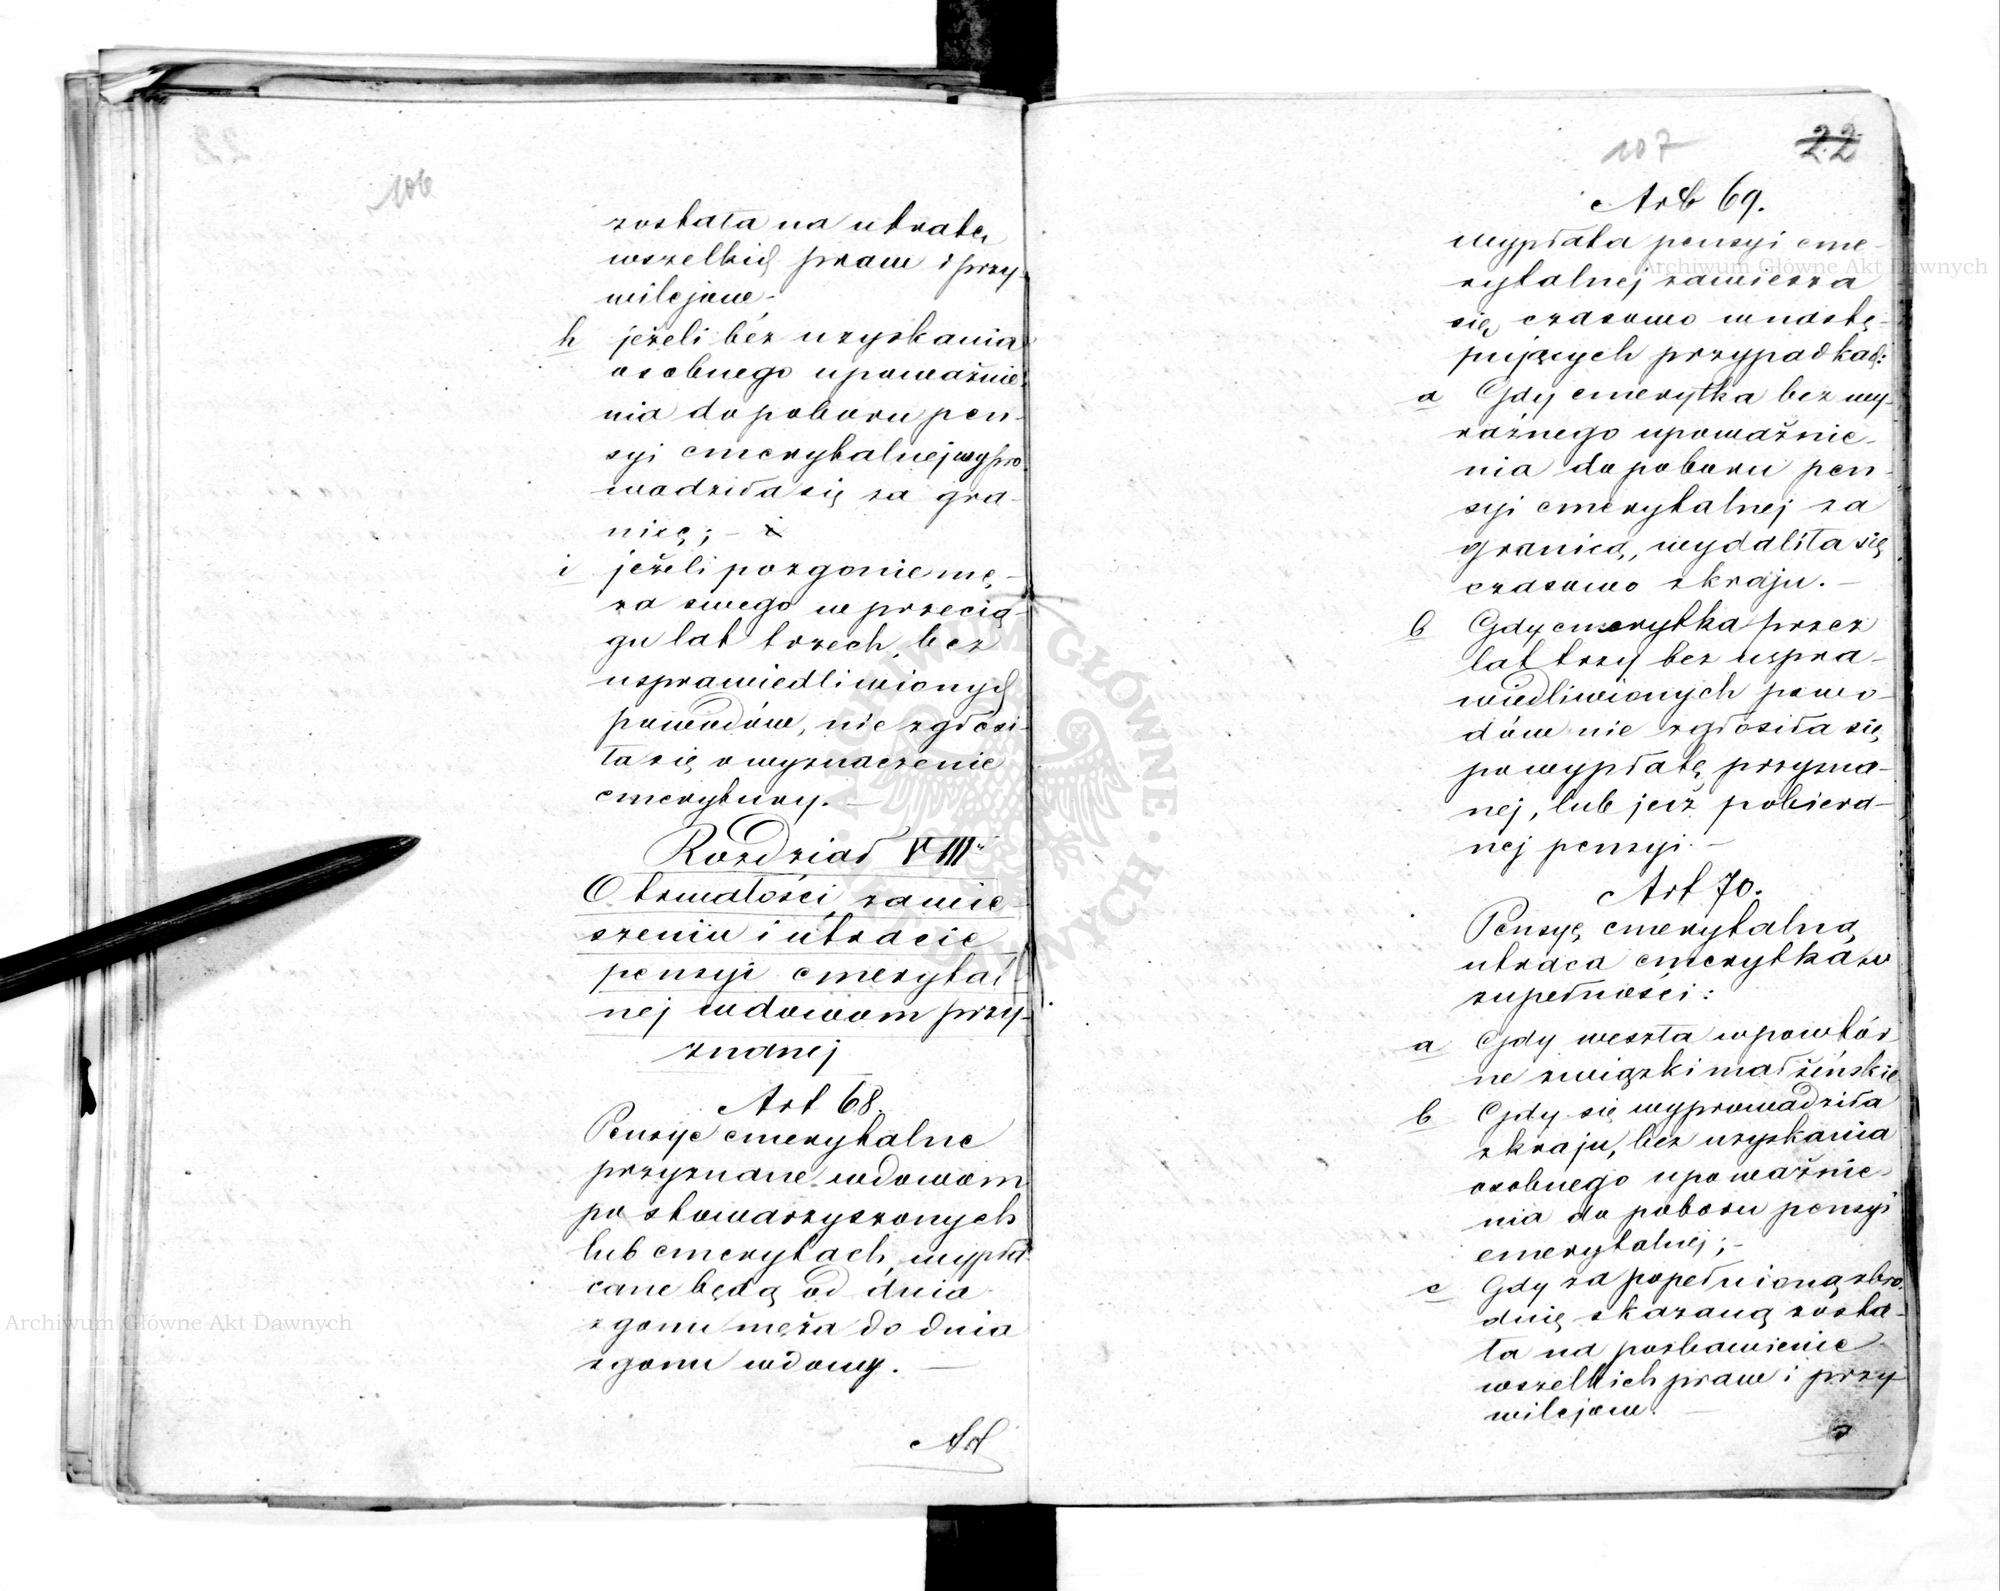 106
została na utratę
wszelkich praw i przy-
wilejow-
h jeżeli bez uzyskania
osobnego upoważnie-
nia do poboru pen-
syi emerytalnej wypro-
wadziła się za gra-
nicę; -
i jeżeli po zgonie mę-
ża swego w przecią-
gu lat trzech, bez
usprawiedliwionych
powodów, nie zgłosi-
ła się o wyznaczenie
emerytury. -
Rozdział VIII
O trwałości, zawie-
szeniu i utracie
pensyi emerytal-
nej wdowom przy-
znanej
Art 68.
Pensye emerytalne
przyznane wdowom
po stowarzyszonych
lub emerytach, wypła-
cane będą od dnia
zgonu męża do dnia
zgonu wdowy. -
Art
107 22
Art 69.
wypłata pensyi eme-
rytalnej zawiesza
się, czasowo w nastę-
pujących przypadkach:
a Gdy emerytka bez wy-
raźnego upoważnie-
nia do poboru pen-
syi emerytalnej za
granicą, wydaliła się
czasowo z kraju. -
b Gdy emerytka przez
lat trzy bez uspra-
wiedliwionych powo-
dów nie zgłosiła się
po wypłatę przyzna-
nej, lub już pobiera-
nej pensyi. -
Art 70.
Pensyę emerytalną
utraca emerytka w
zupełności:
a Gdy weszła w powtór-
ne związki małżeńskie
b Gdy się wyprowadziła
z kraju, bez uzyskania
osobnego upoważnie-
nia do poboru pensyi
emerytalnej; -
c Gdy za popełnioną zbro-
dnię skazaną zosta-
ła na pozbawienie
wszelkich praw i przy-
wilejow. -
Archiwum Główne Akt Dawnych
Archiwum Główne Akt Dawnych
ARCHIWUM GŁÓWNE AKT DAWNYCH